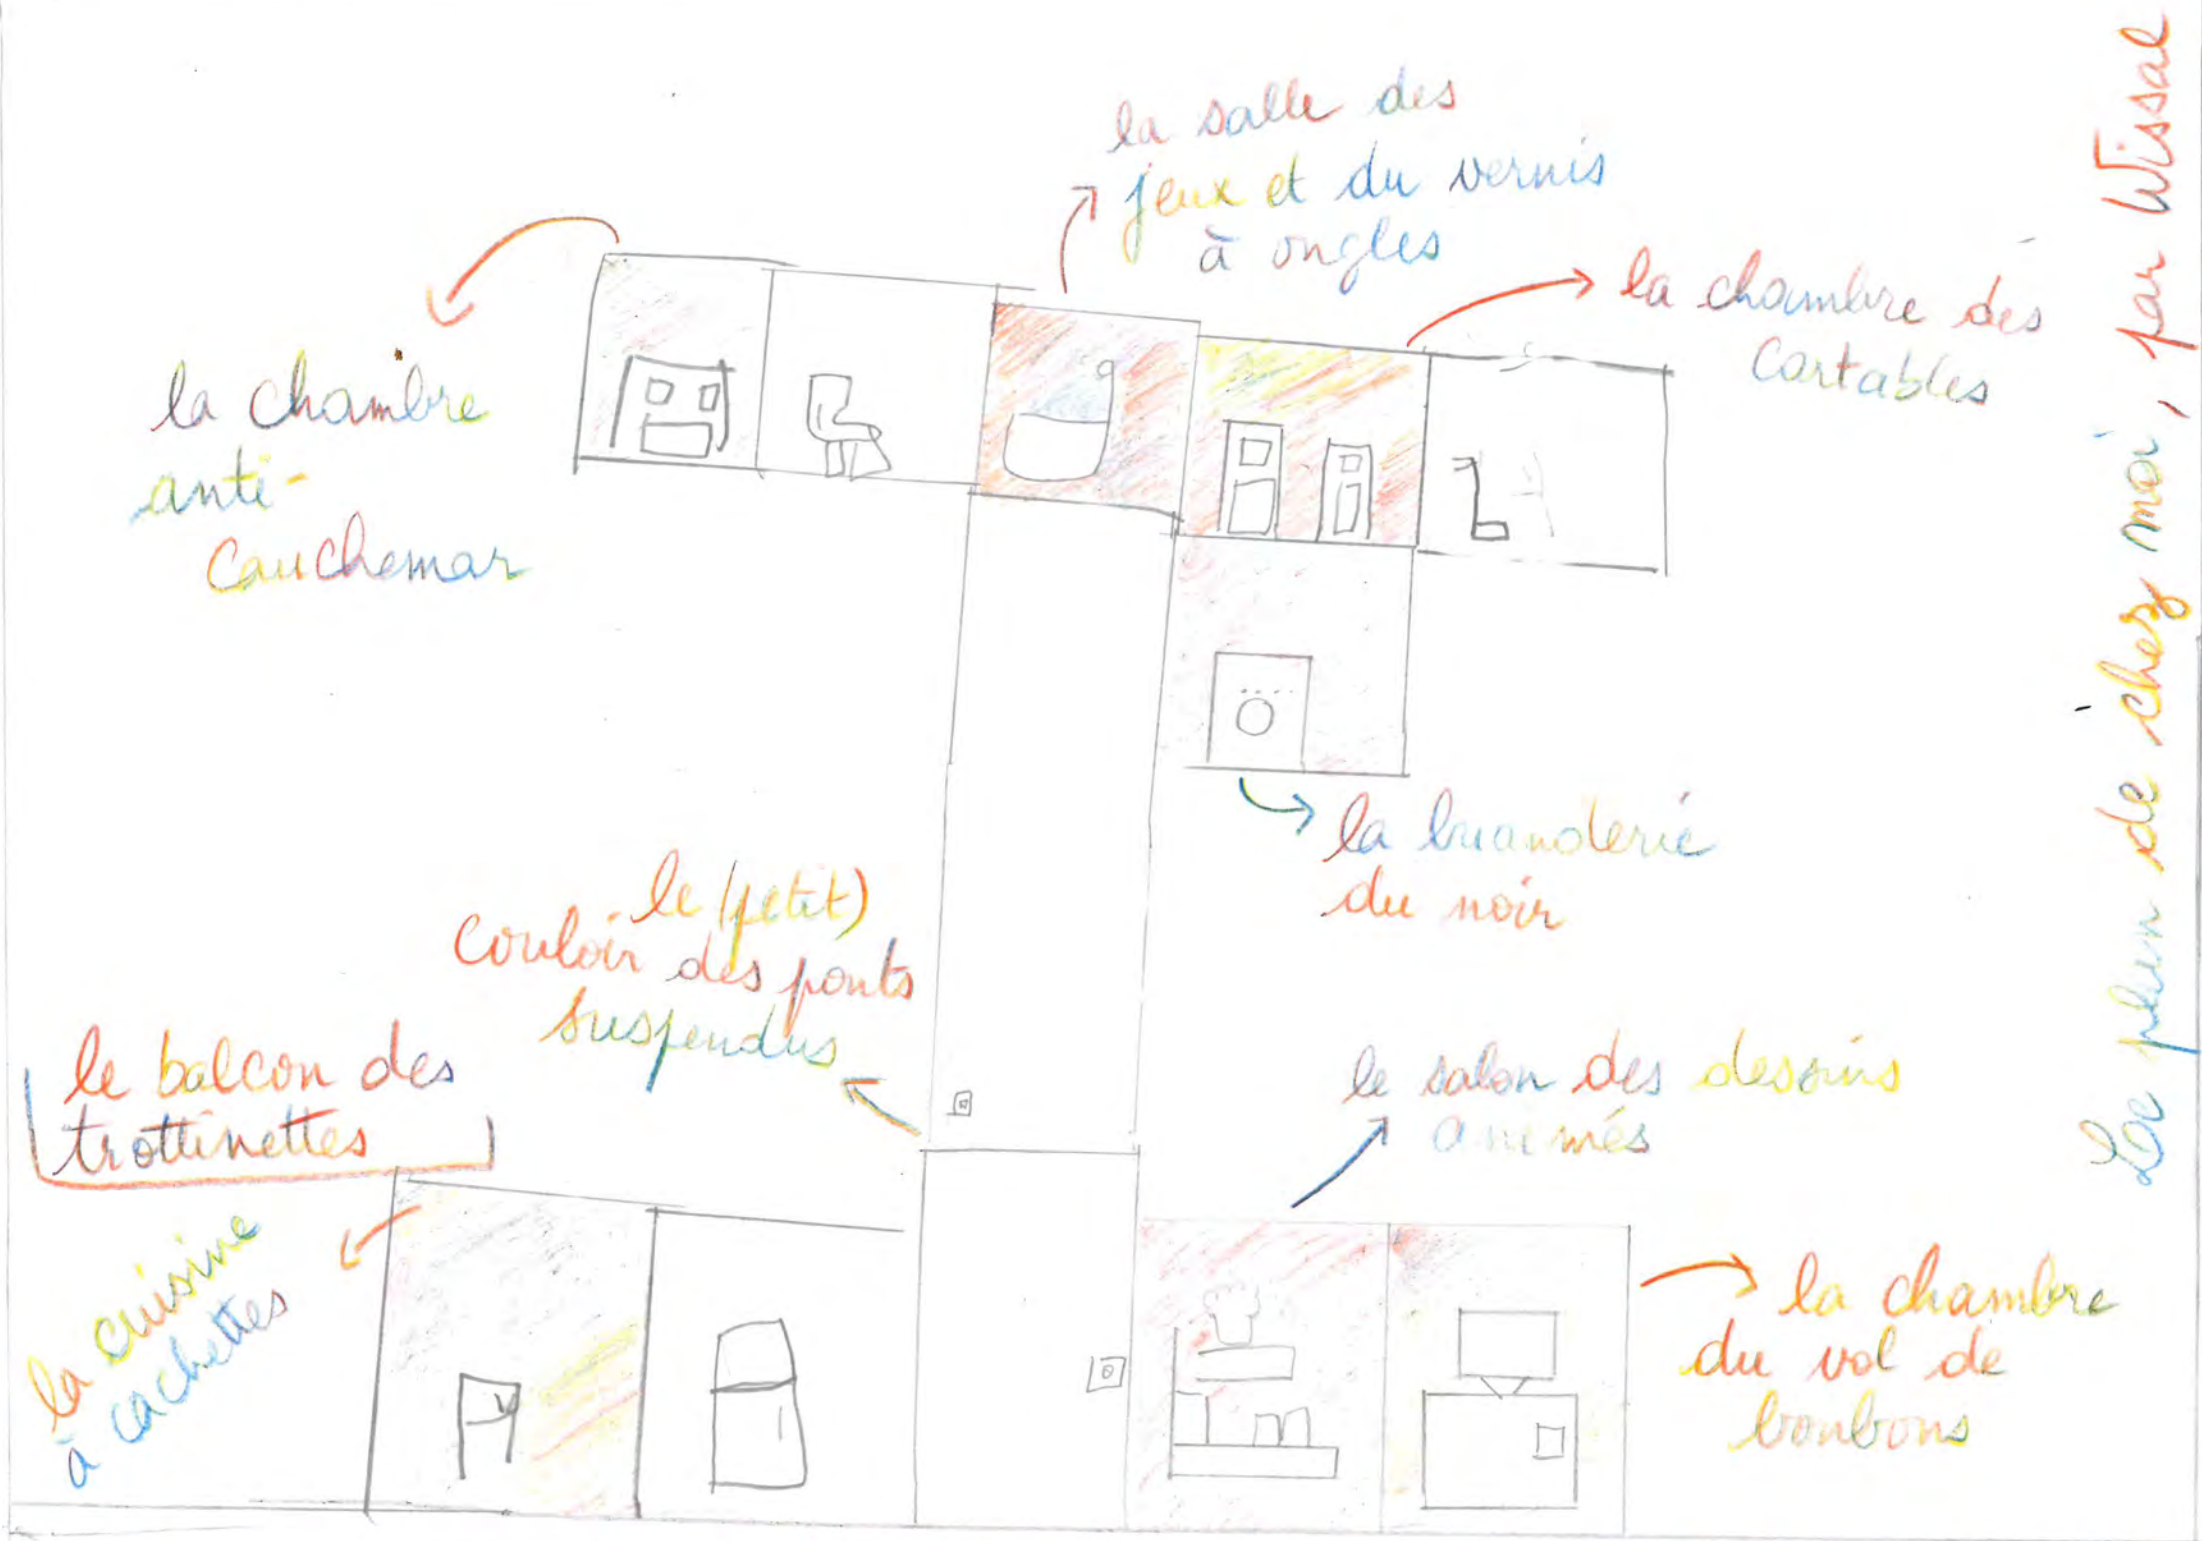 la salle des
jeux et du vernis
à ongles
la chambre des
cartables
la chambre
anti-
cauchemar
la buanderie
du noir
le (petit)
couloir des ponts
suspendus
le balcon des
trottinettes
le salon des dessins
animés
la cuisine
à cachettes
la chambre
du vol de
bonbons
Le plan de chez moi, par Wissal